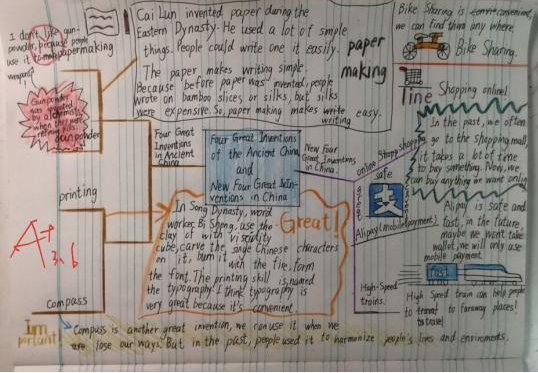 I don't like gun-
powder, because people
use it to make
weapons!
papermaking
Gunpowder
was invented
by alchemists
when they
gunpowder
printing
compass
Important
Cai Lun invented paper during the
Eastern Dynasty. He used a lot of simple
things. People could write one it easily.
The paper makes writing simple.
Because before paper was invented, people
wrote on bamboo slices, or silks, but silks
were expensive. So, paper making makes write easy.
writing
paper
making
Four Great
Inventions
in Ancient
China
Four Great Inventions
of the Ancient China
and
New Four Great &Inventions
in China
New Four
Great Inventions
in China
In Song Dynasty, word
worker, Bi Sheng, use the
clay of with viscidity
cube, carve the single Chinese characters
on it, burn it with the fire, form
the font. The printing skill is named
the typography. I think typography is
very great because it's convenient.
Great!
Compass is another great invention, we can use it when we
lose our ways. But in the past, people used it to harmonize people's lives and enviroments.
Bike Sharing is convenient,
we can find them any where.
Bike Sharing.
line
Shopping online!
In the past, we often
go to the shopping mall,
it takes a lot of time
to buy something. Now, we
can buy anything we want online
online Shopping
safe
支
Alipay (mobile payment)
Alipay is safe and
fast, in the future,
maybe we won't take
wallet, we will only use
mobile payment.
High-Speed
trains.
fast
High Speed train can help people
to travel to faraway places!
to travel
A+
3.6